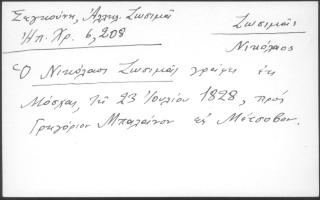 Σεγκούνη, Ἀλληλ. Ζωσιμᾶ
Ἠπ. Χρ. 6, 208
Ζωσιμᾶς
Νικόλαος
Ὁ Νικόλαος Ζωσιμᾶς γράφει ἐκ
Μόσχας, τῇ 23 Ἰουλίου 1828, πρός
Γρηγόριον Μπαλάνον εἰς Μέτσοβον.